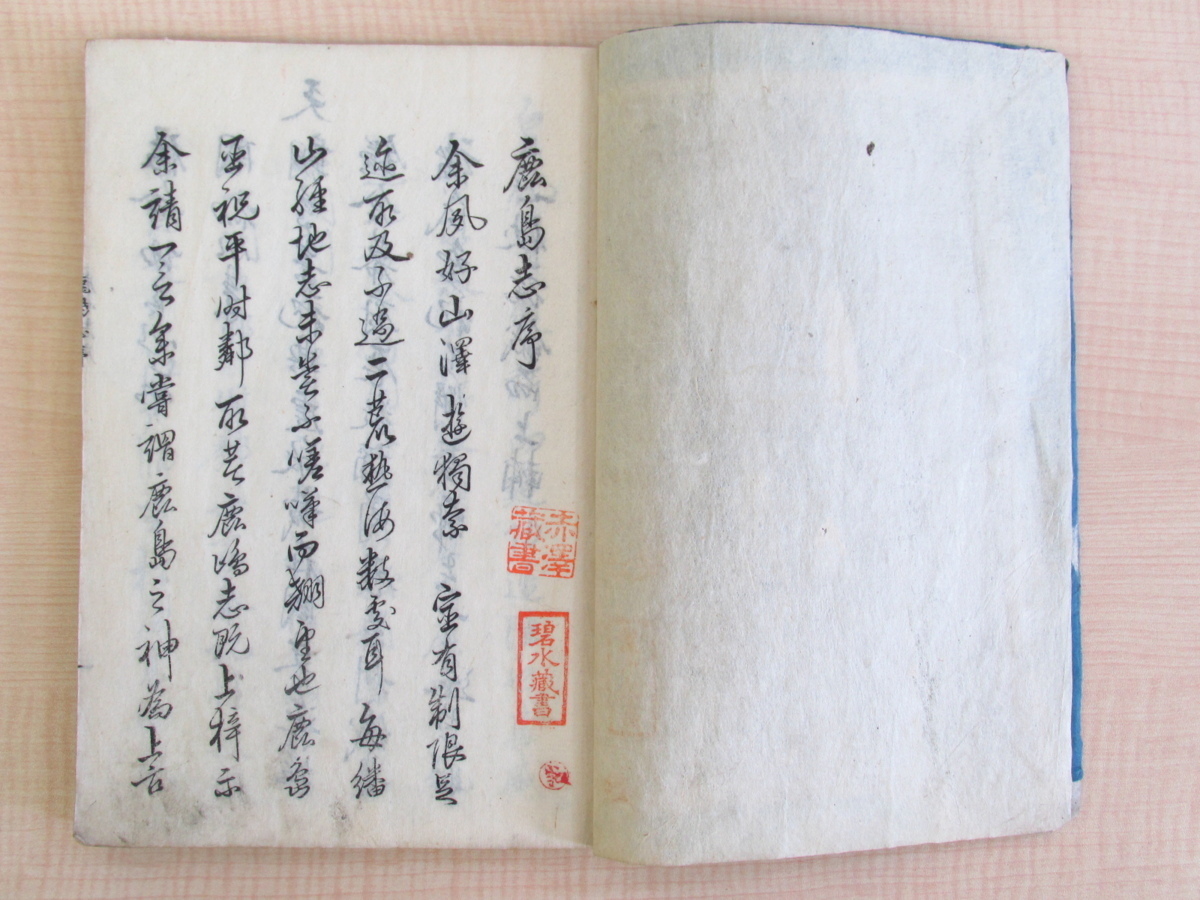 鹿島志序
余夙好山澤遊獨奈室有制限足
迹所及不過二荒熱海數處耳每繙
山經地志未嘗不嗟嘆而翹望也鹿島
祝平時鄰所著鹿嶋志既上梓示
余請一言余嘗謂鹿島之神為上古
赤澤
藏書
碧水藏書